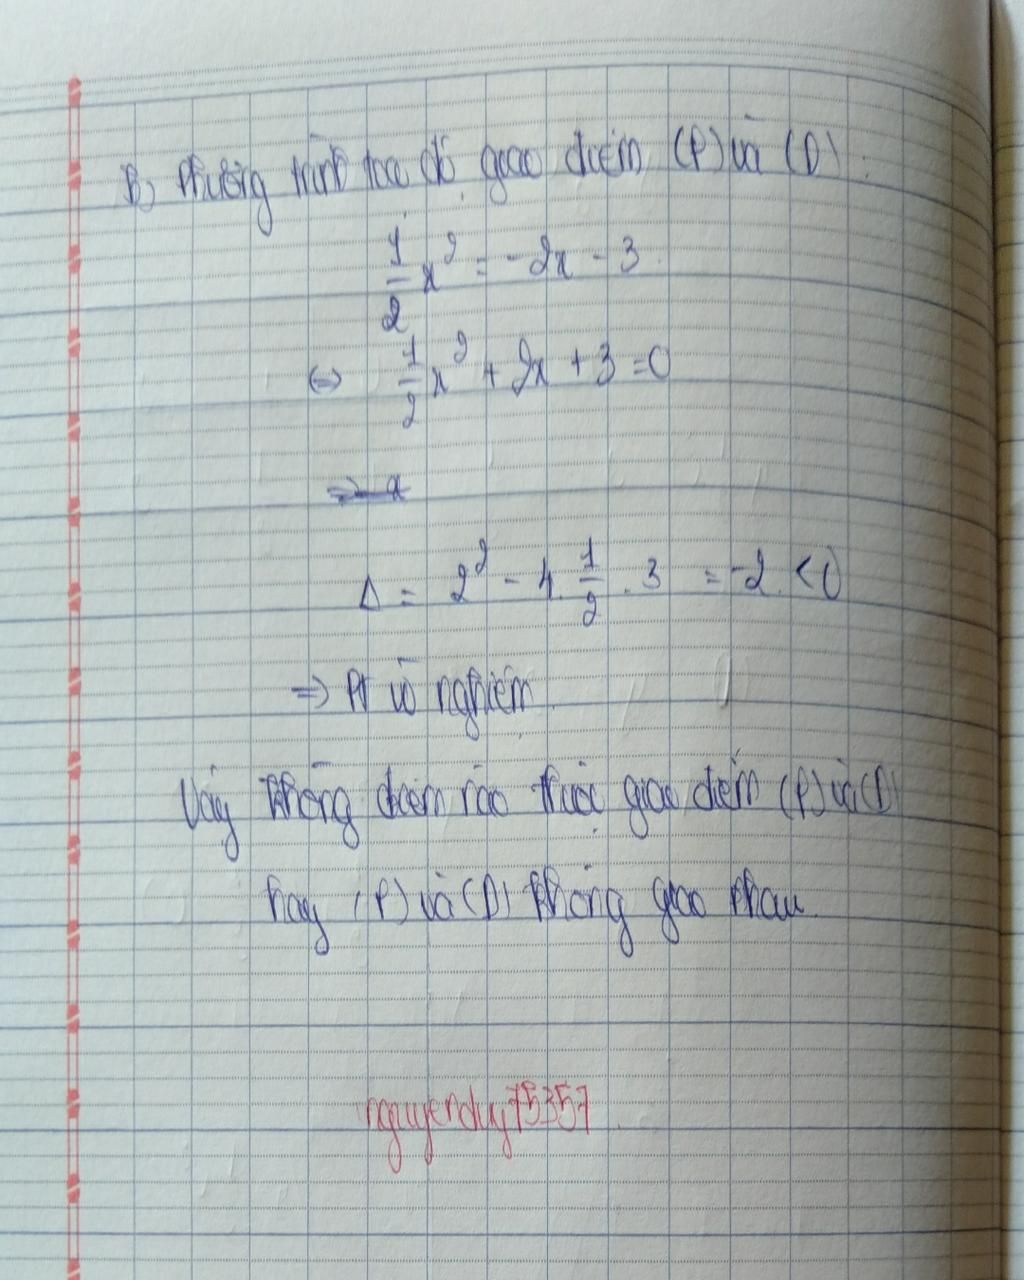 B) Phương trình toạ độ giao điểm (P) và (D).
1/2 x² = -2x - 3
<=> 1/2 x² + 2x + 3 = 0
Δ = 2² - 4. 1/2 . 3 = -2 < 0
=> Pt vô nghiệm
Vậy không điểm nào thuộc giao điểm (P) và (D)
hay (P) và (D) không giao nhau.
nguyenduy75357